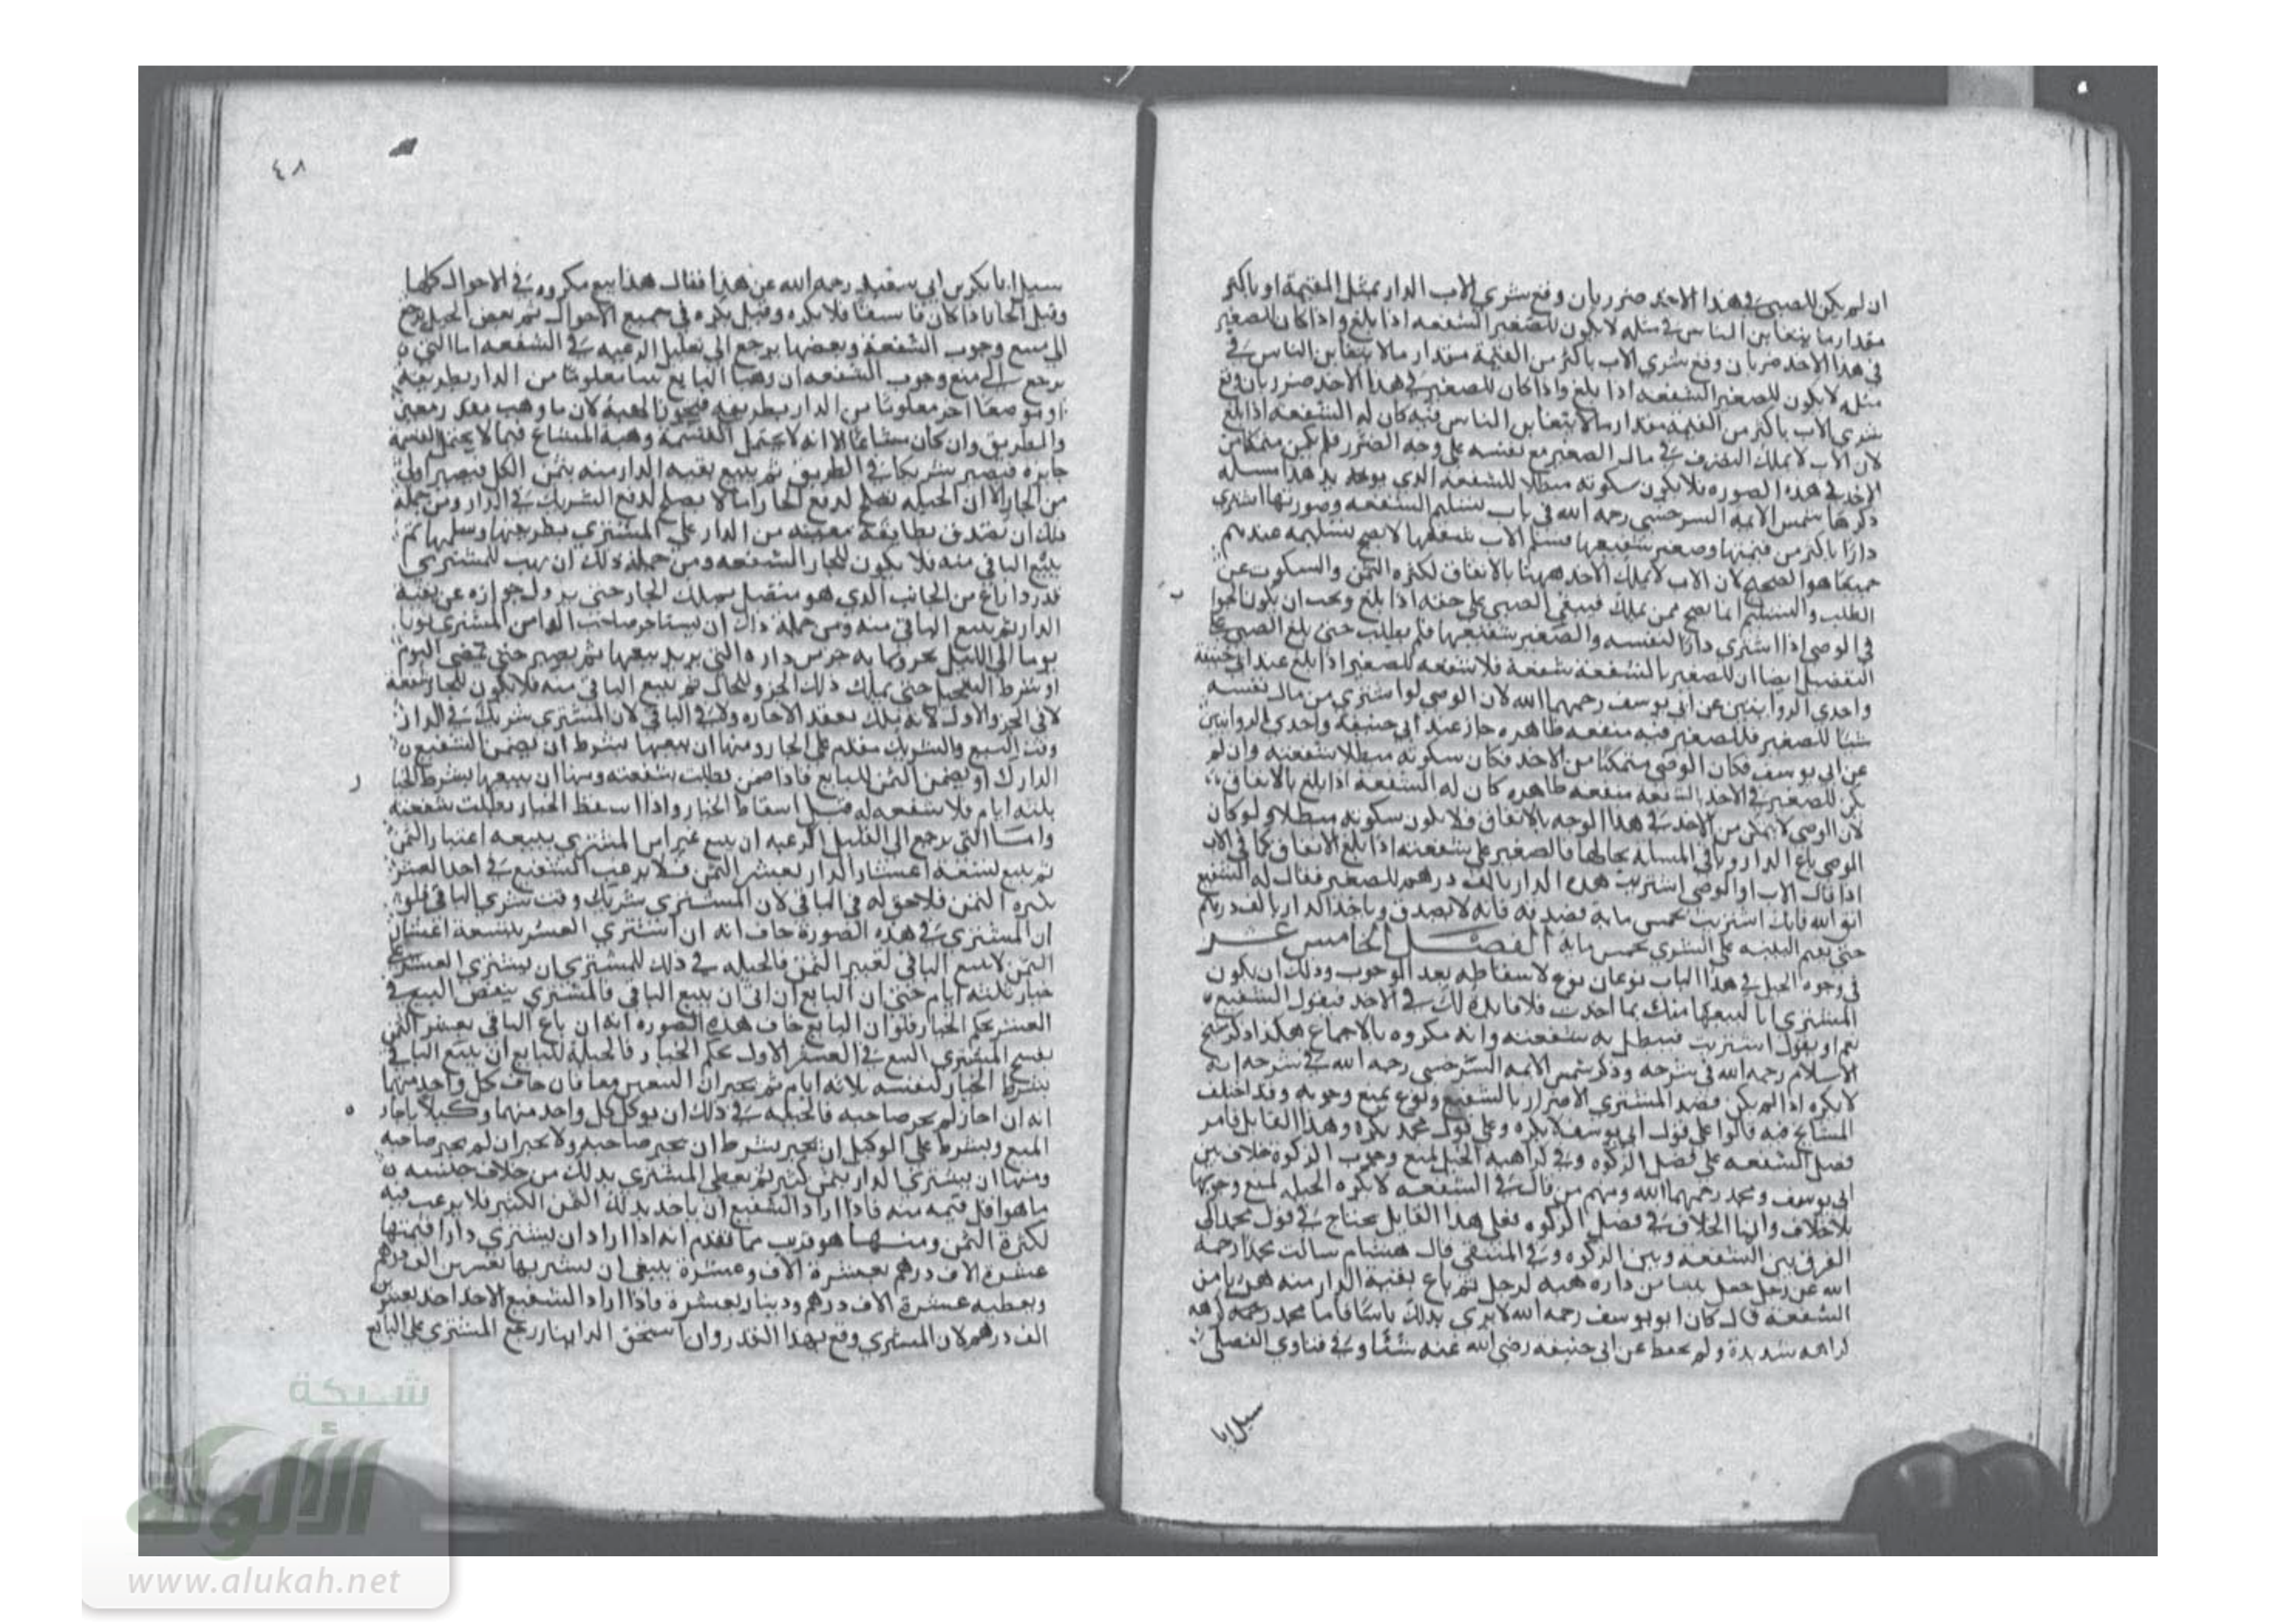 ان لم يكن للصبي في هذا الاخذ ضرر بان وقع شري الاب الدار بمثل القيمة او باكثر
مقدار ما يتغابن الناس في مثله لا يكون للصغير الشفعه اذا بلغ واذا كان للصغير
في هذا الاخذ ضر بان وقع شري الاب باكثر من القيمة مقدار مالا يتغابن الناس في
مثله لا يكون للصغير الشفعه اذا بلغ واذا كان للصغير في هذا الاخذ ضرر بان وقع
شري الاب باكثر من القيمة مقدار مالا يتغابن الناس فيه كان له الشفعه اذا بلغ
لان الاب لا يملك التصرف في مال الصغير مع نفسه على وجه الضرر فلم يكن متمكنا من
الاخذ في هذه الصوره فلا يكون سكوته مبطلا للشفعه الذي يوخذ هذا مسله
ذكرها شمس الايمة السرخسي رحمه الله في باب تسليم الشفعه وصورتها اشتري
دارا باكثر من قيمتها وصغير شفيعها فسلم الاب شفعتها لا يصح تسليمه عندهم
جميعا هو الصحيح لان الاب لا يملك الاخذ ههنا بالاتفاق لكثره الثمن والسكوت عن
الطلب والتسليم انما يصح ممن يملك فيبقى الصبي على حقه اذا بلغ ويجب ان يكون الجوا
في الوصي اذا اشتري دارا لنفسه والصغير شفيعها فلم يطلب حتى بلغ الصبي على
التفصيل ايضا ان للصغير بالشفعه شفعة فلا شفعه للصغير اذا بلغ عند ابي حنيفة
واحدي الروايتين عن ابي يوسف رحمهما الله لان الوصي لو اشتري من مال نفسه
شيا للصغير فللصغير فيه منفعه ظاهره جاز عند ابي حنيفة واحدي الروايتين
عن ابي يوسف فكان الوصي متمكنا من الاخذ فكان سكوته مبطلا شفعته وان لم
يكن للصغير في الاخذ بالشفعه منفعه ظاهره كان له الشفعة اذا بلغ بالاتفاق
لان الوصي لا يتمكن من الاخذ في هذا الوجه بالاتفاق فلا يكون سكوته مبطلا ولو كان
الوصي باع الدار وباقي المسلة بحالها فالصغير على شفعته اذا بلغ الاتفاق كما في الاب
اذا قال الاب او الوصي اشتريت هذه الدار بالف درهم للصغير فقال له الشفيع
اتق الله فانك اشتريت بخمس ماية فصدقه فانه لا يصدق وياخذ الدار بالف درهم
حتى يقيم البينه على الشري بخمس ماية الفصل الخامس عشر
في وجوه الحيل في هذا الباب نوعان نوع لاسقاطه بعد الوجوب وذلك ان يكون
المشتري انا ابيعها منك بما اخذت فلا فايدة لك في الاخذ فيقول الشفيع
نعم او يقول اشتريت فيبطل به شفعته وانه مكروه بالاجماع هكذا ذكر شيخ
الاسلام رحمه الله في شرحه وذكر شمس الايمه السرخسي رحمه الله في شرحه انه
لا يكره اذا لم يكن قصد المشتري الاضرار بالشفيع ونوع يمنع وجوبه وقد اختلف
المشايخ فيه قالوا على قول ابي يوسف لا يكره وعلى قول محمد يكره وهذا القايل قاس
فصل الشفعه على فصل الزكوه وفي كراهيه الحيل لمنع وجوب الزكوة خلاف بين
ابي يوسف ومحمد رحمهما الله ومنهم من قال في الشفعه لا يكره الحيله لمنع وجوبها
بلا خلاف وانما الخلاف في فصل الزكوه فعلى هذا القايل يحتاج في قول محمد الى
الفرق بين الشفعه وبين الزكوه وفي المنتقي قال هشام سالت محمدا رحمه
الله عن رجل جعل من داره هبه لرجل ثم باع بقية الدار منه هربا من
الشفعة قال كان ابو يوسف رحمه الله لا يري بذلك باسا فاما محمد رحمه الله
كراهه شديدة ولم يحفظ عن ابي حنيفه رضي الله عنه شيئا وفي فتاوي الفضلي
سيل ابا
٤٨
سيل ابا بكر بن ابي سعيد رحمه الله عن هذا فقال هذا بيع مكروه في الاحوال كلها
وقيل الجار اذا كان فاسقا فلا يكره وقيل يكره في جميع الاحوال ثم بعض الحيل يرجع
الى منع وجوب الشفعة وبعضها يرجع الى تقليل الرغبه في الشفعه اما التي
يرجع الى منع وجوب الشفعه ان وهب البايع بيتا معلوما من الدار بطريقه
او موضعا اخر معلوما من الدار بطريقه فيجوز الهبة لان ما وهب مفرز معين
والطريق وان كان مشاعا الا انه لا يحتمل القسمة وهبة المشاع فيما لا يحتمل القسمة
جايزه فيصير شريكا في الطريق ثم يبيع بقيه الدار منه بثمن الكل فيصير اولى
من الجار الا ان الحيله تصلح لدفع الجار اما لا يصلح لدفع الشريك في الدار ومن جملة
ذلك ان يتصدق بطايفة معينه من الدار على المشتري بطريقها وسلمها ثم
يبيع الباقي منه فلا يكون للجار الشفعه ومن جملة ذلك ان يهب للمشتري
قدر ذراع من الجانب الذي هو متصل بملك الجار حتى يزول جواره عن بقية
الدار ثم يبيع الباقي منه ومن جملة ذلك ان يستاجر صاحب الدار من المشتري ثوبا
يوما الى الليل بجزو ما به جز من داره التي يريد بيعها ثم يصبر حتى تمضى اليوم
او شرط التعجيل حتى يملك ذلك الجزو للحال ثم يبيع الباقي منه فلا يكون للجار شفعة
لا في الجزو الاول لانه يملك بعقد الاجاره ولا في الباقي لان المشتري شريك في الدار
وقت البيع والشريك مقدم على الجار ومنها ان يبيعها بشرط ان يضمن الشفيع
الدرك او يضمن الثمن للبايع فاذا ضمن بطلت شفعته ومنها ان يبيعها بشرط الخيار
ثلثه ايام فلا شفعه له قبل اسقاط الخيار واذا اسقط الخيار بطلت شفعته
واما التي يرجع الى تقليل الرغبه ان يبيع عشرا من المشتري بتسعه اعشار الثمن
ثم يبيع تسعة اعشار الدار بعشر الثمن فلا يرغب الشفيع في اخذ العشر
لكثره الثمن فلا حق له في الباقي لان المشتري شريك وقت شري الباقي فلو
ان المشتري في هذه الصورة خاف انه ان اشتري العشر بتسعة اعشار
الثمن لا يبيع الباقي بعشر الثمن فالحيله في ذلك للمشتري ان يشتري العشر على
خيار ثلثه ايام حتى ان البايع ان ابى ان يبيع الباقي فالمشتري ينقض البيع في
العشر بحكم الخيار فلو ان البايع خاف هذه الصوره انه ان باع الباقي بعشر الثمن
يفسخ المشتري البيع في العشر الاول بحكم الخيار فالحيلة للبايع ان يبيع الباقي
بشرط الخيار لنفسه ثلاثه ايام ثم يجيزان البيعين معا فان خاف كل واحد منهما
انه ان اجاز لم يجز صاحبه فالحيله في ذلك ان يوكل كل واحد منهما وكيلا باجازة
البيع ويشترط على الوكيل ان يجيز بشرط ان يجيز صاحبه ولا يجيز ان لم يجز صاحبه
ومنها ان يشتري الدار بثمن كثير ثم يعطي المشتري بذلك من خلاف جنسه
ما هو اقل قيمه منه فاذا اراد الشفيع ان ياخذ بذلك الثمن الكثير فلا يرغب فيه
لكثرة الثمن ومنها هو قريب مما تقدم انه اذا اراد ان يشتري دارا قيمتها
عشرة الاف درهم بعشرة الاف وعشرة ينبغي ان يشتريها بعشرين الف درهم
ويعطيه عشرة الاف درهم ودينار بعشرة واذا اراد الشفيع الاخذ اخذ بعشرين
الف درهم لان المشتري وقع بهذا القدر وان استحق الدار رجع المشتري على البايع
شبكة
الألوكة
www.alukah.net